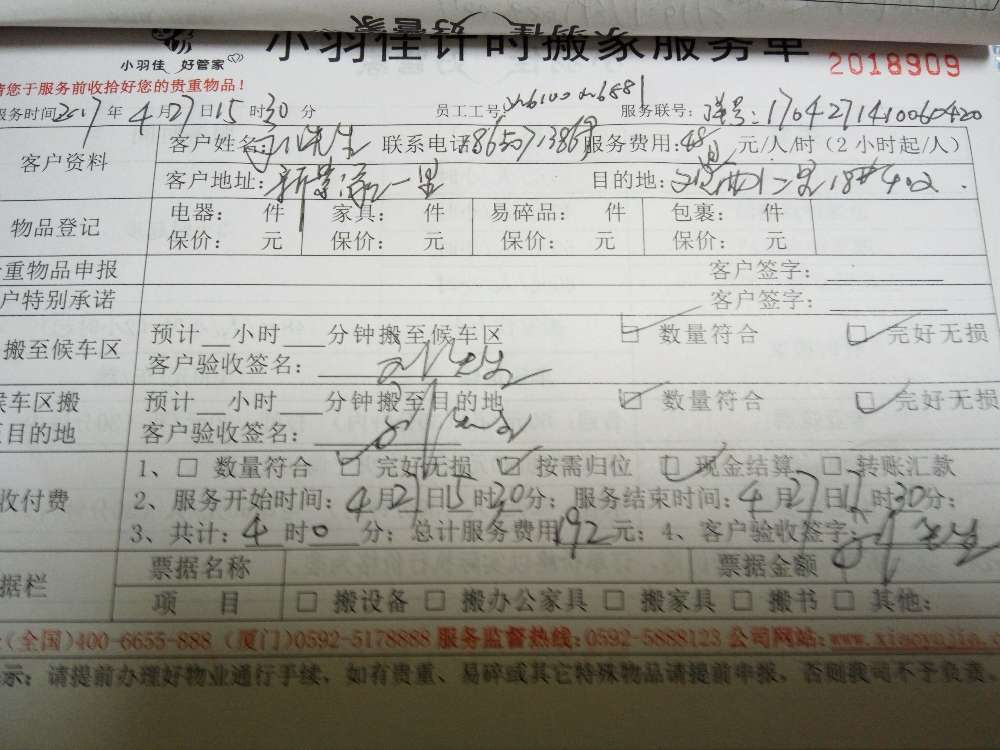 小羽佳计时搬家服务单
小羽佳 好管家
2018909
请您于服务前收拾好您的贵重物品！
服务时间2017年4月27日15时30分 员工工号: 服务联号: 1704271410060420
客户资料
客户姓名: 先生 联系电话 服务费用:48元/人/时(2小时起/人)
客户地址: 新景 一里 目的地: 二里18#402.
物品登记
电器: 件 家具: 件 易碎品: 件 包裹: 件
保价: 元 保价: 元 保价: 元 保价: 元
重物品申报 客户签字:
户特别承诺 客户签字:
搬至候车区
预计__小时___分钟搬至候车区 ☑ 数量符合 ☑ 完好无损
客户验收签名: 先生
候车区搬
目的地
预计__小时___分钟搬至目的地 ☑ 数量符合 ☑ 完好无损
客户验收签名: 先生
收付费
1、□ 数量符合 ☑ 完好无损 ☑ 按需归位 ☑ 现金结算 □ 转账汇款
2、服务开始时间:4月27日15时30分; 服务结束时间:4月27日 时30分;
3、共计:4时0分; 总计服务费用192元; 4、客户验收签字: 先生
据栏
票据名称 票据金额
项 目 □ 搬设备 □ 搬办公家具 □ 搬家具 □ 搬书 □ 其他:
(全国)400-6655-888 (厦门)0592-5178888 服务监督热线:0592-5888123 公司网站:www.xiaoyujia.c
示: 请提前办理好物业通行手续，如有贵重、易碎或其它特殊物品请提前申报，否则我司不予负责。